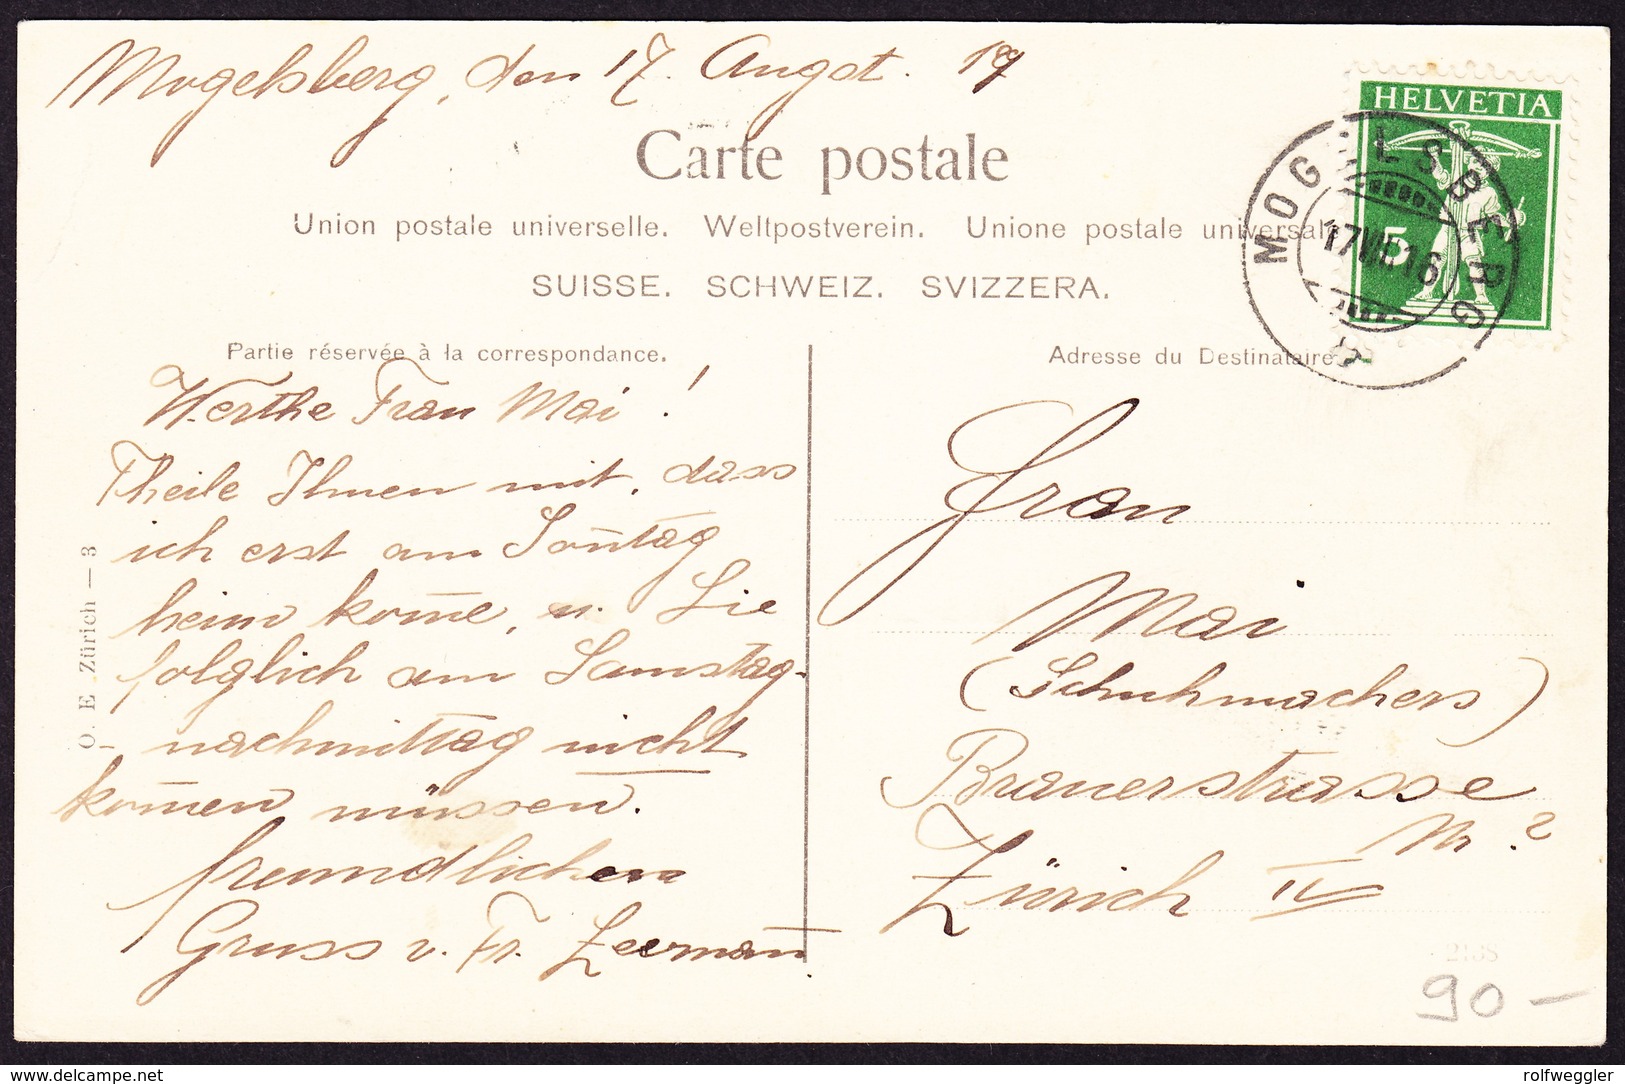 Mogelsberg, den 17. Augst. 19
Carte postale
Union postale universelle. Weltpostverein. Unione postale universale
SUISSE. SCHWEIZ. SVIZZERA.
HELVETIA
5
MOGELSBERG
Partie réservée à la correspondance.
Adresse du Destinataire
Werthe Frau Mai!
Theile Ihnen mit, dass
ich erst am Son̄tag
heim kom̄e, u. Sie
folglich am Samstag-
nachmittag nicht
kom̄en müssen.
freundlichen
Gruss v. Fr. Zeeman̄
O. E. Zürich — 3
Frau
Mai
(Schuhmachers)
Brauerstrasse
Nr. ?
Zürich IV
90 —
delcampe.net
rolfweggler